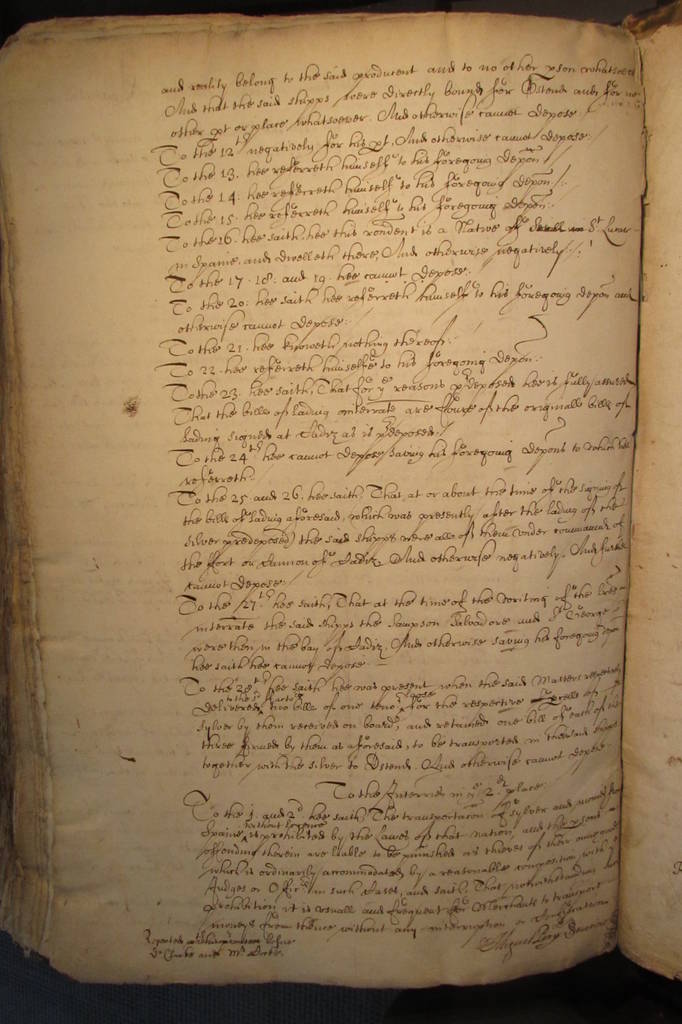 and really belong to the said producent and to no other pson whatsoever
And that the said shipps were directly bound for Ostend and for no
other pt or place whatsoever. And otherwise cannot depose.
To the 12th negatively for his pt, And otherwise cannot depose:
To the 13. hee referreth himselfe to his foregoing depon:
To the 14. hee referreth himselfe to his foregoing depon:
To the 15. hee referreth himselfe to his foregoing depon:
To the 16. hee saith, hee this rendent is a Native of St Lucar
in Spaine, and dwelleth there, And otherwise negatively:
To the 17. 18. and 19. hee cannot depose.
To the 20. hee saith hee referreth himselfe to his foregoing depon and
otherwise cannot depose:
To the 21. hee knoweth nothing thereof:
To 22. hee referreth himselfe to his foregoing depon:
To the 23. hee saith, That for ye reasons pdeposed hee is fully assured
That the bills of lading interrate are of the originall bills of
lading signed at Cadiz as is pdeposed:
To the 24th hee cannot depose saving his foregoing depons to which hee
referreth.
To the 25. and 26. hee saith, That at or about the time of the signing of
the bills of lading aforesaid, which was presently after the lading of the
silver predeposed) the said shipps were all of them under command of
the ffort or Cannon of Cadiz. And otherwise negatively. And further
cannot depose
To the 27th hee saith, That at the time of the writing of the
interrate the said shipps the Sampson Salvadore and St George
were then in the bay of Cadiz, And otherwise saving his foregoing depon
hee saith hee cannot depose
To the 28th hee saith hee was present when the said Masters respectively
delivered two bills of one teno for the respective pcells of
sylver by them received on board, and retained one bill of each of the
three firmed by them as aforesaid, to be transported in the said shipps
together with the silver to Ostend. And otherwise cannot depose.
To the Interries in ye 2d place.
To the 1. and 2d hee saith, The transportacon of sylver and moneys from
Spaine without lycence is prohibited by the lawes of that nation, and the psons
offending therein are liable to be punished as theives of their owne goods
which is ordinarily accommodated by a reasonable composition with the
Judges or Officrs in such cases, and saith, That notwithstanding such
prohibition, it is usuall and frequent for Merchants to transport
moneys from thence without any interruption or
Repeated before
Dr Clerke and Mr